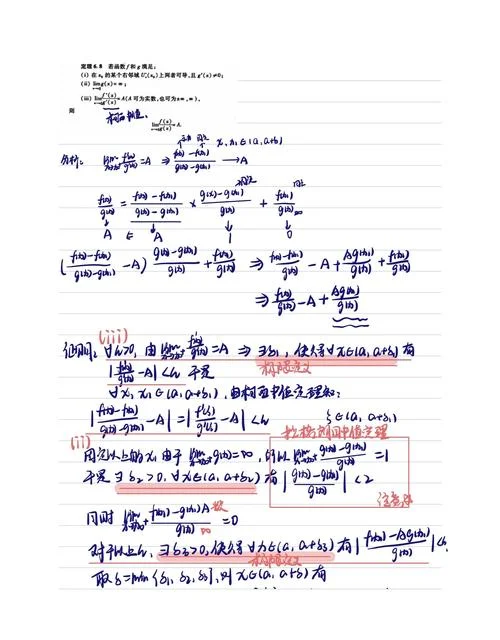 定理 6.8 若函数 f 和 g 满足:
(i) 在 x₀ 的某个右邻域 U₊°(x₀) 上两者可导,且 g'(x)≠0;
(ii) lim g(x)=∞;
(iii) lim f'(x)/g'(x)=A(A 可为实数,也可为±∞,∞),
则
lim f(x)/g(x)=A.
分析: lim f(x)/g(x)=A ⇒ (f(x)-f(x₁))/(g(x)-g(x₁)) → A
x, x₁∈(a, a+δ)
f(x)/g(x) = (f(x)-f(x₁))/(g(x)-g(x₁)) × (g(x)-g(x₁))/g(x) + f(x₁)/g(x)
A ← A 1 0
((f(x)-f(x₁))/(g(x)-g(x₁)) -A) (g(x)-g(x₁))/g(x) + f(x₁)/g(x) ⇒ f(x)-f(x₁)/g(x) -A + Ag(x₁)/g(x) + f(x₁)/g(x)
⇒ f(x)/g(x) -A + Ag(x₁)/g(x)
(iii)
证明: ∀h>0, 由 lim f'/g'(x)=A ⇒ ∃δ₁, 使得∀x∈(a, a+δ₁)有
|f'(x)/g'(x) -A|<h 于是 极限定义
∀x, x₁∈(a, a+δ₁), 由柯西中值定理知:
|(f(x)-f(x₁))/(g(x)-g(x₁)) -A| = |f'(ξ)/g'(ξ) -A|<h ξ∈(a, a+δ₁)
中值定理
(ii)
固定以上的x₁ 由于 lim g(x)=∞, 所以 lim (g(x)-g(x₁))/g(x) =1
于是∃δ₂>0, ∀x∈(a, a+δ₂)有 |(g(x)-g(x₁))/g(x)|<2
同时 lim (f(x₁)-g(x₁)A)/g(x) =0
对于以上h, ∃δ₃>0, 使得∀x∈(a, a+δ₃)有 |(f(x₁)-Ag(x₁))/g(x)|<h
极限定义
取δ=min{δ₁, δ₂, δ₃}, 则 x∈(a, a+δ)有